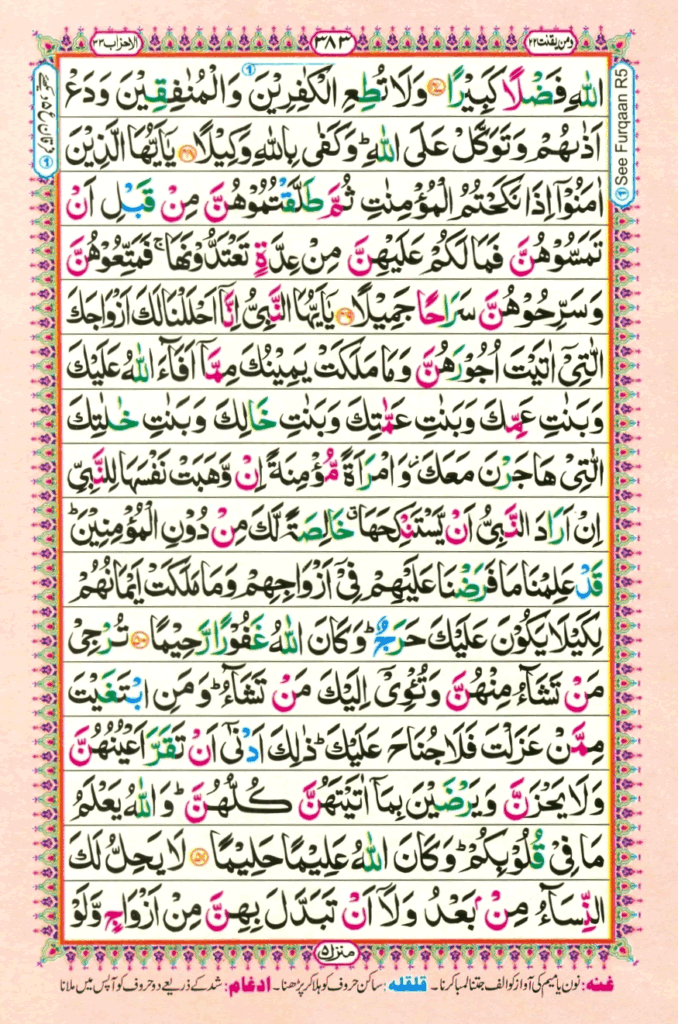 ومن یقنت ۲۲
۳۸۳
الاحزاب ۳۳
اللّٰهِ فَضْلًا كَبِیْرًا ۝۴۷ وَلَا تُطِعِ الْكٰفِرِیْنَ وَالْمُنٰفِقِیْنَ وَدَعْ
اَذٰىهُمْ وَتَوَكَّلْ عَلَى اللّٰهِؕ وَكَفٰى بِاللّٰهِ وَكِیْلًا ۝۴۸ یٰۤاَیُّهَا الَّذِیْنَ
اٰمَنُوْۤا اِذَا نَكَحْتُمُ الْمُؤْمِنٰتِ ثُمَّ طَلَّقْتُمُوْهُنَّ مِنْ قَبْلِ اَنْ
تَمَسُّوْهُنَّ فَمَا لَكُمْ عَلَیْهِنَّ مِنْ عِدَّةٍ تَعْتَدُّوْنَهَاۚ فَمَتِّعُوْهُنَّ
وَسَرِّحُوْهُنَّ سَرَاحًا جَمِیْلًا ۝۴۹ یٰۤاَیُّهَا النَّبِیُّ اِنَّاۤ اَحْلَلْنَا لَكَ اَزْوَاجَكَ
الّٰتِیْۤ اٰتَیْتَ اُجُوْرَهُنَّ وَمَا مَلَكَتْ یَمِیْنُكَ مِمَّاۤ اَفَآءَ اللّٰهُ عَلَیْكَ
وَبَنٰتِ عَمِّكَ وَبَنٰتِ عَمّٰتِكَ وَبَنٰتِ خَالِكَ وَبَنٰتِ خٰلٰتِكَ
الّٰتِیْ هَاجَرْنَ مَعَكَؗ وَامْرَاَةً مُّؤْمِنَةً اِنْ وَّهَبَتْ نَفْسَهَا لِلنَّبِیِّ
اِنْ اَرَادَ النَّبِیُّ اَنْ یَّسْتَنْكِحَهَاۗ خَالِصَةً لَّكَ مِنْ دُوْنِ الْمُؤْمِنِیْنَؕ
قَدْ عَلِمْنَا مَا فَرَضْنَا عَلَیْهِمْ فِیْۤ اَزْوَاجِهِمْ وَمَا مَلَكَتْ اَیْمَانُهُمْ
لِكَیْلَا یَكُوْنَ عَلَیْكَ حَرَجٌؕ وَكَانَ اللّٰهُ غَفُوْرًا رَّحِیْمًا ۝۵۰ تُرْجِیْ
مَنْ تَشَآءُ مِنْهُنَّ وَتُـْٔوِیْۤ اِلَیْكَ مَنْ تَشَآءُؕ وَمَنِ ابْتَغَیْتَ
مِمَّنْ عَزَلْتَ فَلَا جُنَاحَ عَلَیْكَؕ ذٰلِكَ اَدْنٰۤى اَنْ تَقَرَّ اَعْیُنُهُنَّ
وَلَا یَحْزَنَّ وَیَرْضَیْنَ بِمَاۤ اٰتَیْتَهُنَّ كُلُّهُنَّؕ وَاللّٰهُ یَعْلَمُ
مَا فِیْ قُلُوْبِكُمْؕ وَكَانَ اللّٰهُ عَلِیْمًا حَلِیْمًا ۝۵۱ لَا یَحِلُّ لَكَ
النِّسَآءُ مِنْۢ بَعْدُ وَلَاۤ اَنْ تَبَدَّلَ بِهِنَّ مِنْ اَزْوَاجٍ وَّلَوْ
See Furqaan R5
منزل ۵
غنه: نون یا میم کی آواز کو الف جتنا لمبا کرنا۔ قلقله: ساکن حروف کو ہلا کر پڑھنا۔ ادغام: شد کے ذریعے دو حروف کو آپس میں ملانا